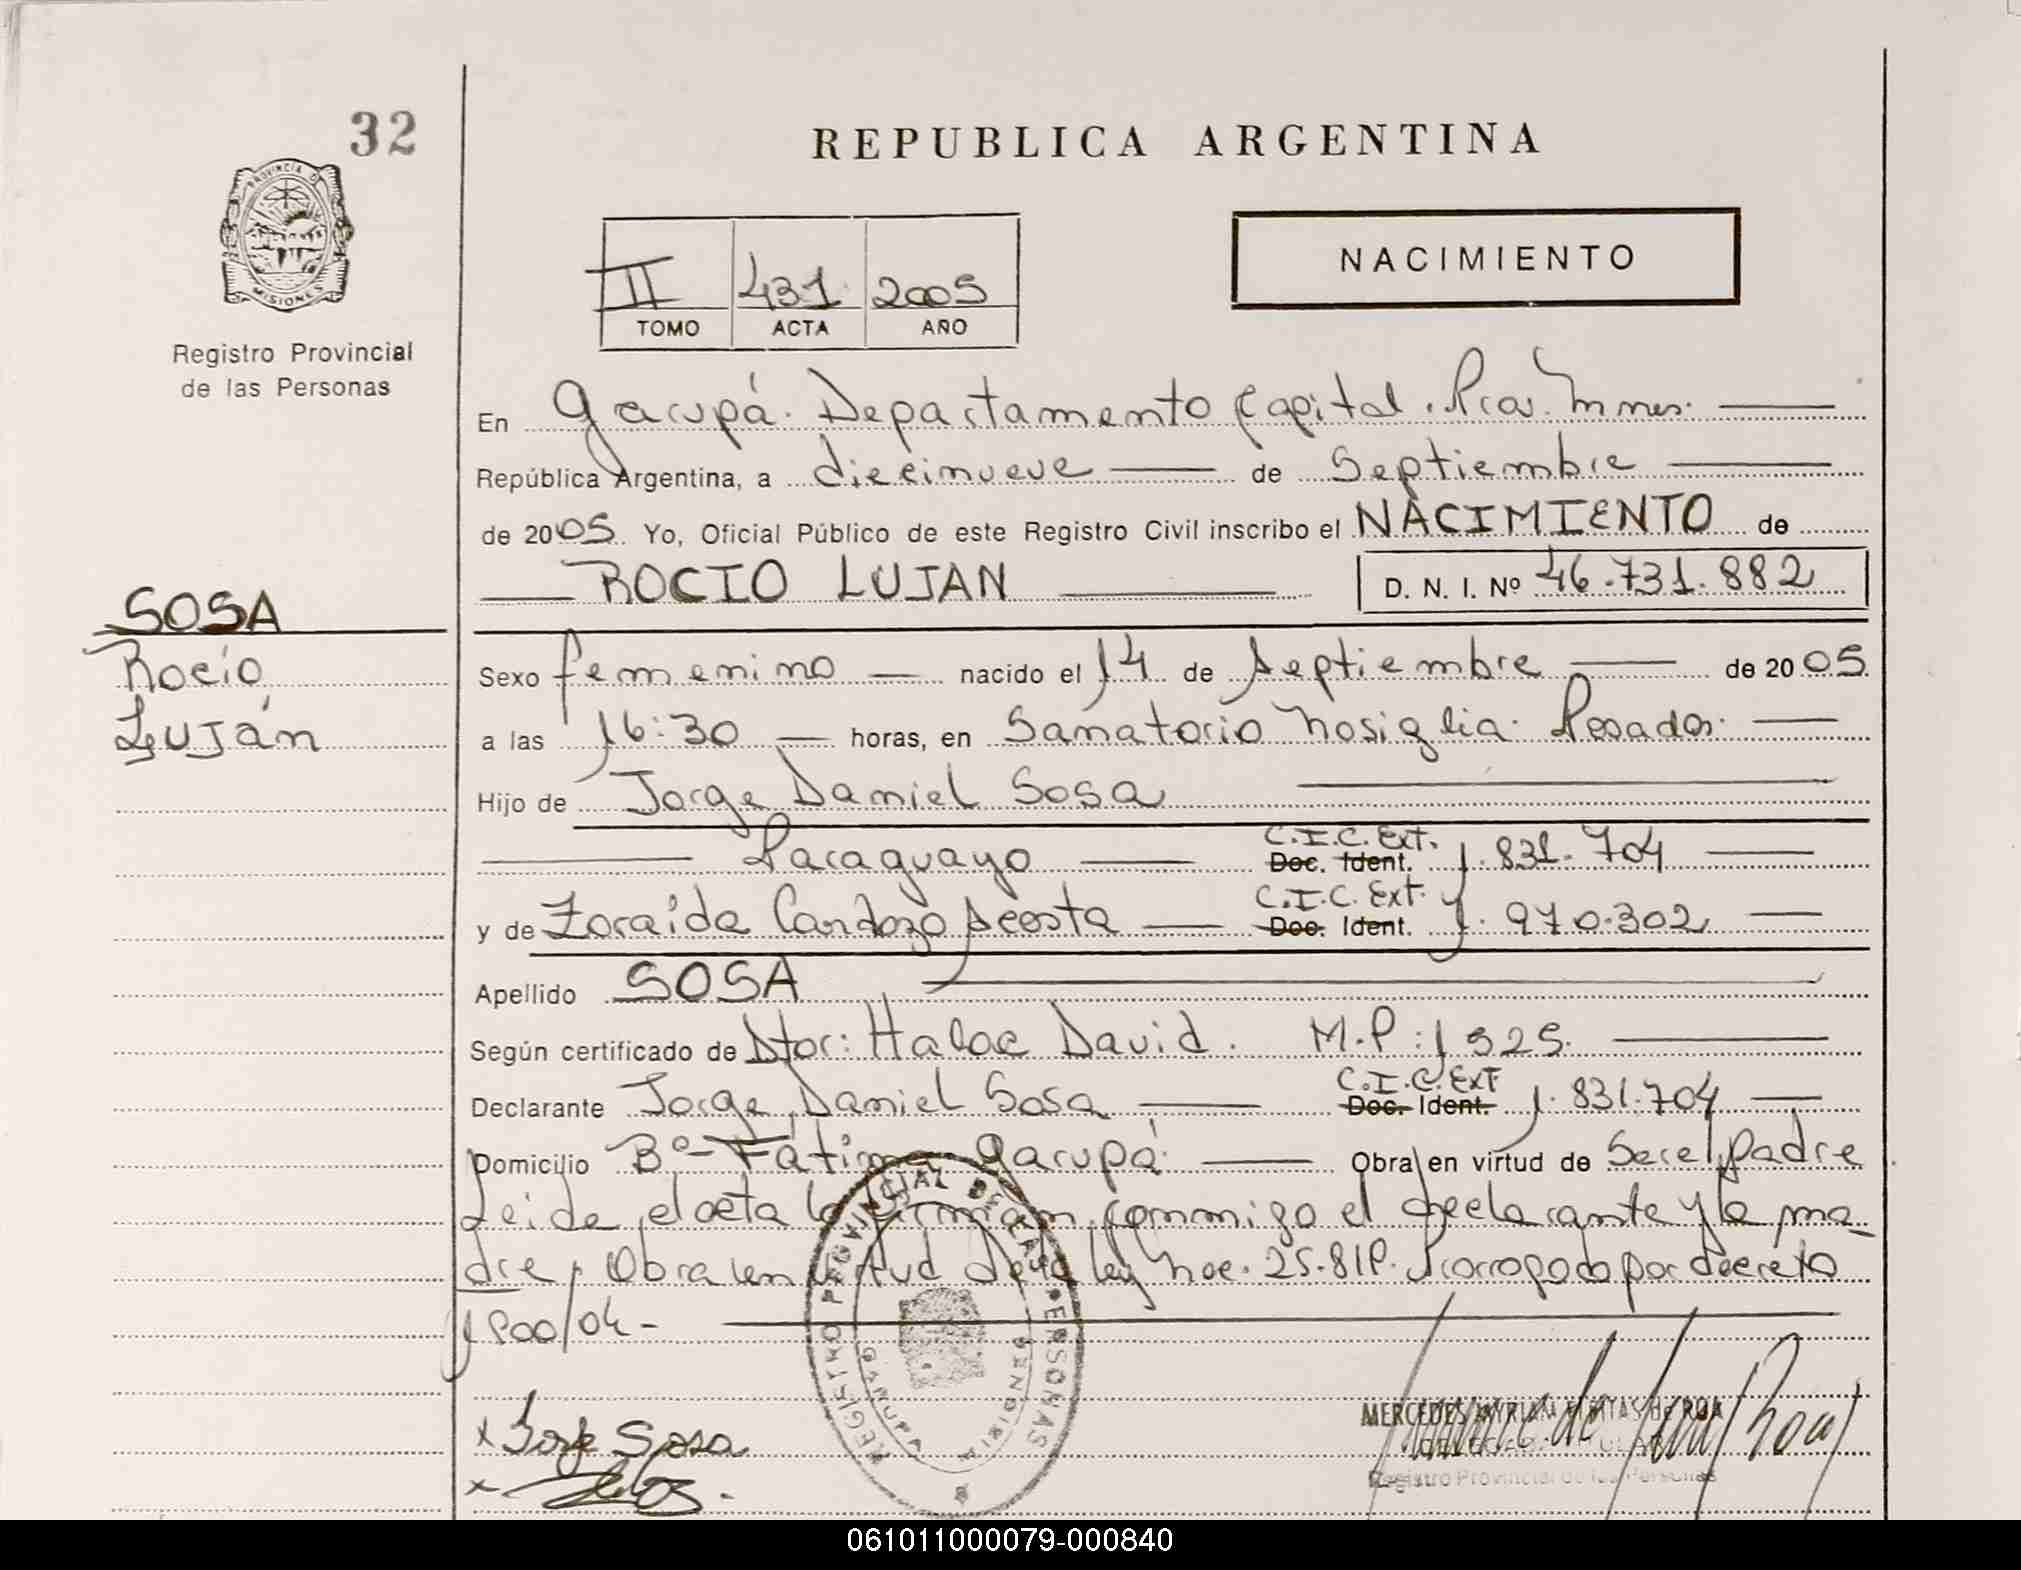 32
REPUBLICA ARGENTINA
PROVINCIA D
MISIONES
Registro Provincial
de las Personas
II 431 2005
TOMO ACTA AÑO
NACIMIENTO
En Garupá. Departamento Capital. Pcia. Mnes.
República Argentina, a diecinueve de Septiembre
de 2005 Yo, Oficial Público de este Registro Civil inscribo el NACIMIENTO de
ROCIO LUJAN D. N. I. Nº 46.731.882
SOSA
Rocío
Luján
Sexo femenino nacido el 14 de septiembre de 2005
a las 16:30 horas, en Sanatorio Nosiglia. Posadas.
Hijo de Jorge Daniel Sosa
Paraguayo C.I.C. Ext. Doc. Ident. 1.831.704
y de Zoraida Cardozo Acosta C.I.C. Ext. Doc. Ident. 1.970.302
Apellido SOSA
Según certificado de Dtor: Halac David. M.P: 1525.
Declarante Jorge Daniel Sosa C.I.C. Ext Doc. Ident. 1.831.704
Domicilio Bº Fátima Garupá Obra en virtud de Ser el padre
Leida el acta la firman conmigo el declarante y la ma-
dre, Obra en virtud De la ley Nac. 25.819. Prorrogado por decreto
1900/04-
x Jorge Sosa
REGISTRO PROVINCIAL DE LAS PERSONAS
GARUPA
MERCEDES MYRIAM DE ROA
DELEGADA TITULAR
Registro Provincial de las Personas
061011000079-000840